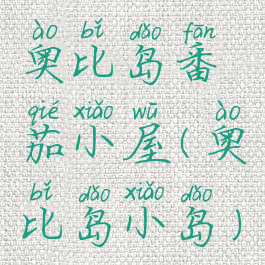 ào bǐ dǎo fān
奥比岛番
qié xiǎo wū ào
茄小屋(奥
bǐ dǎo xiǎo dǎo
比岛小岛)